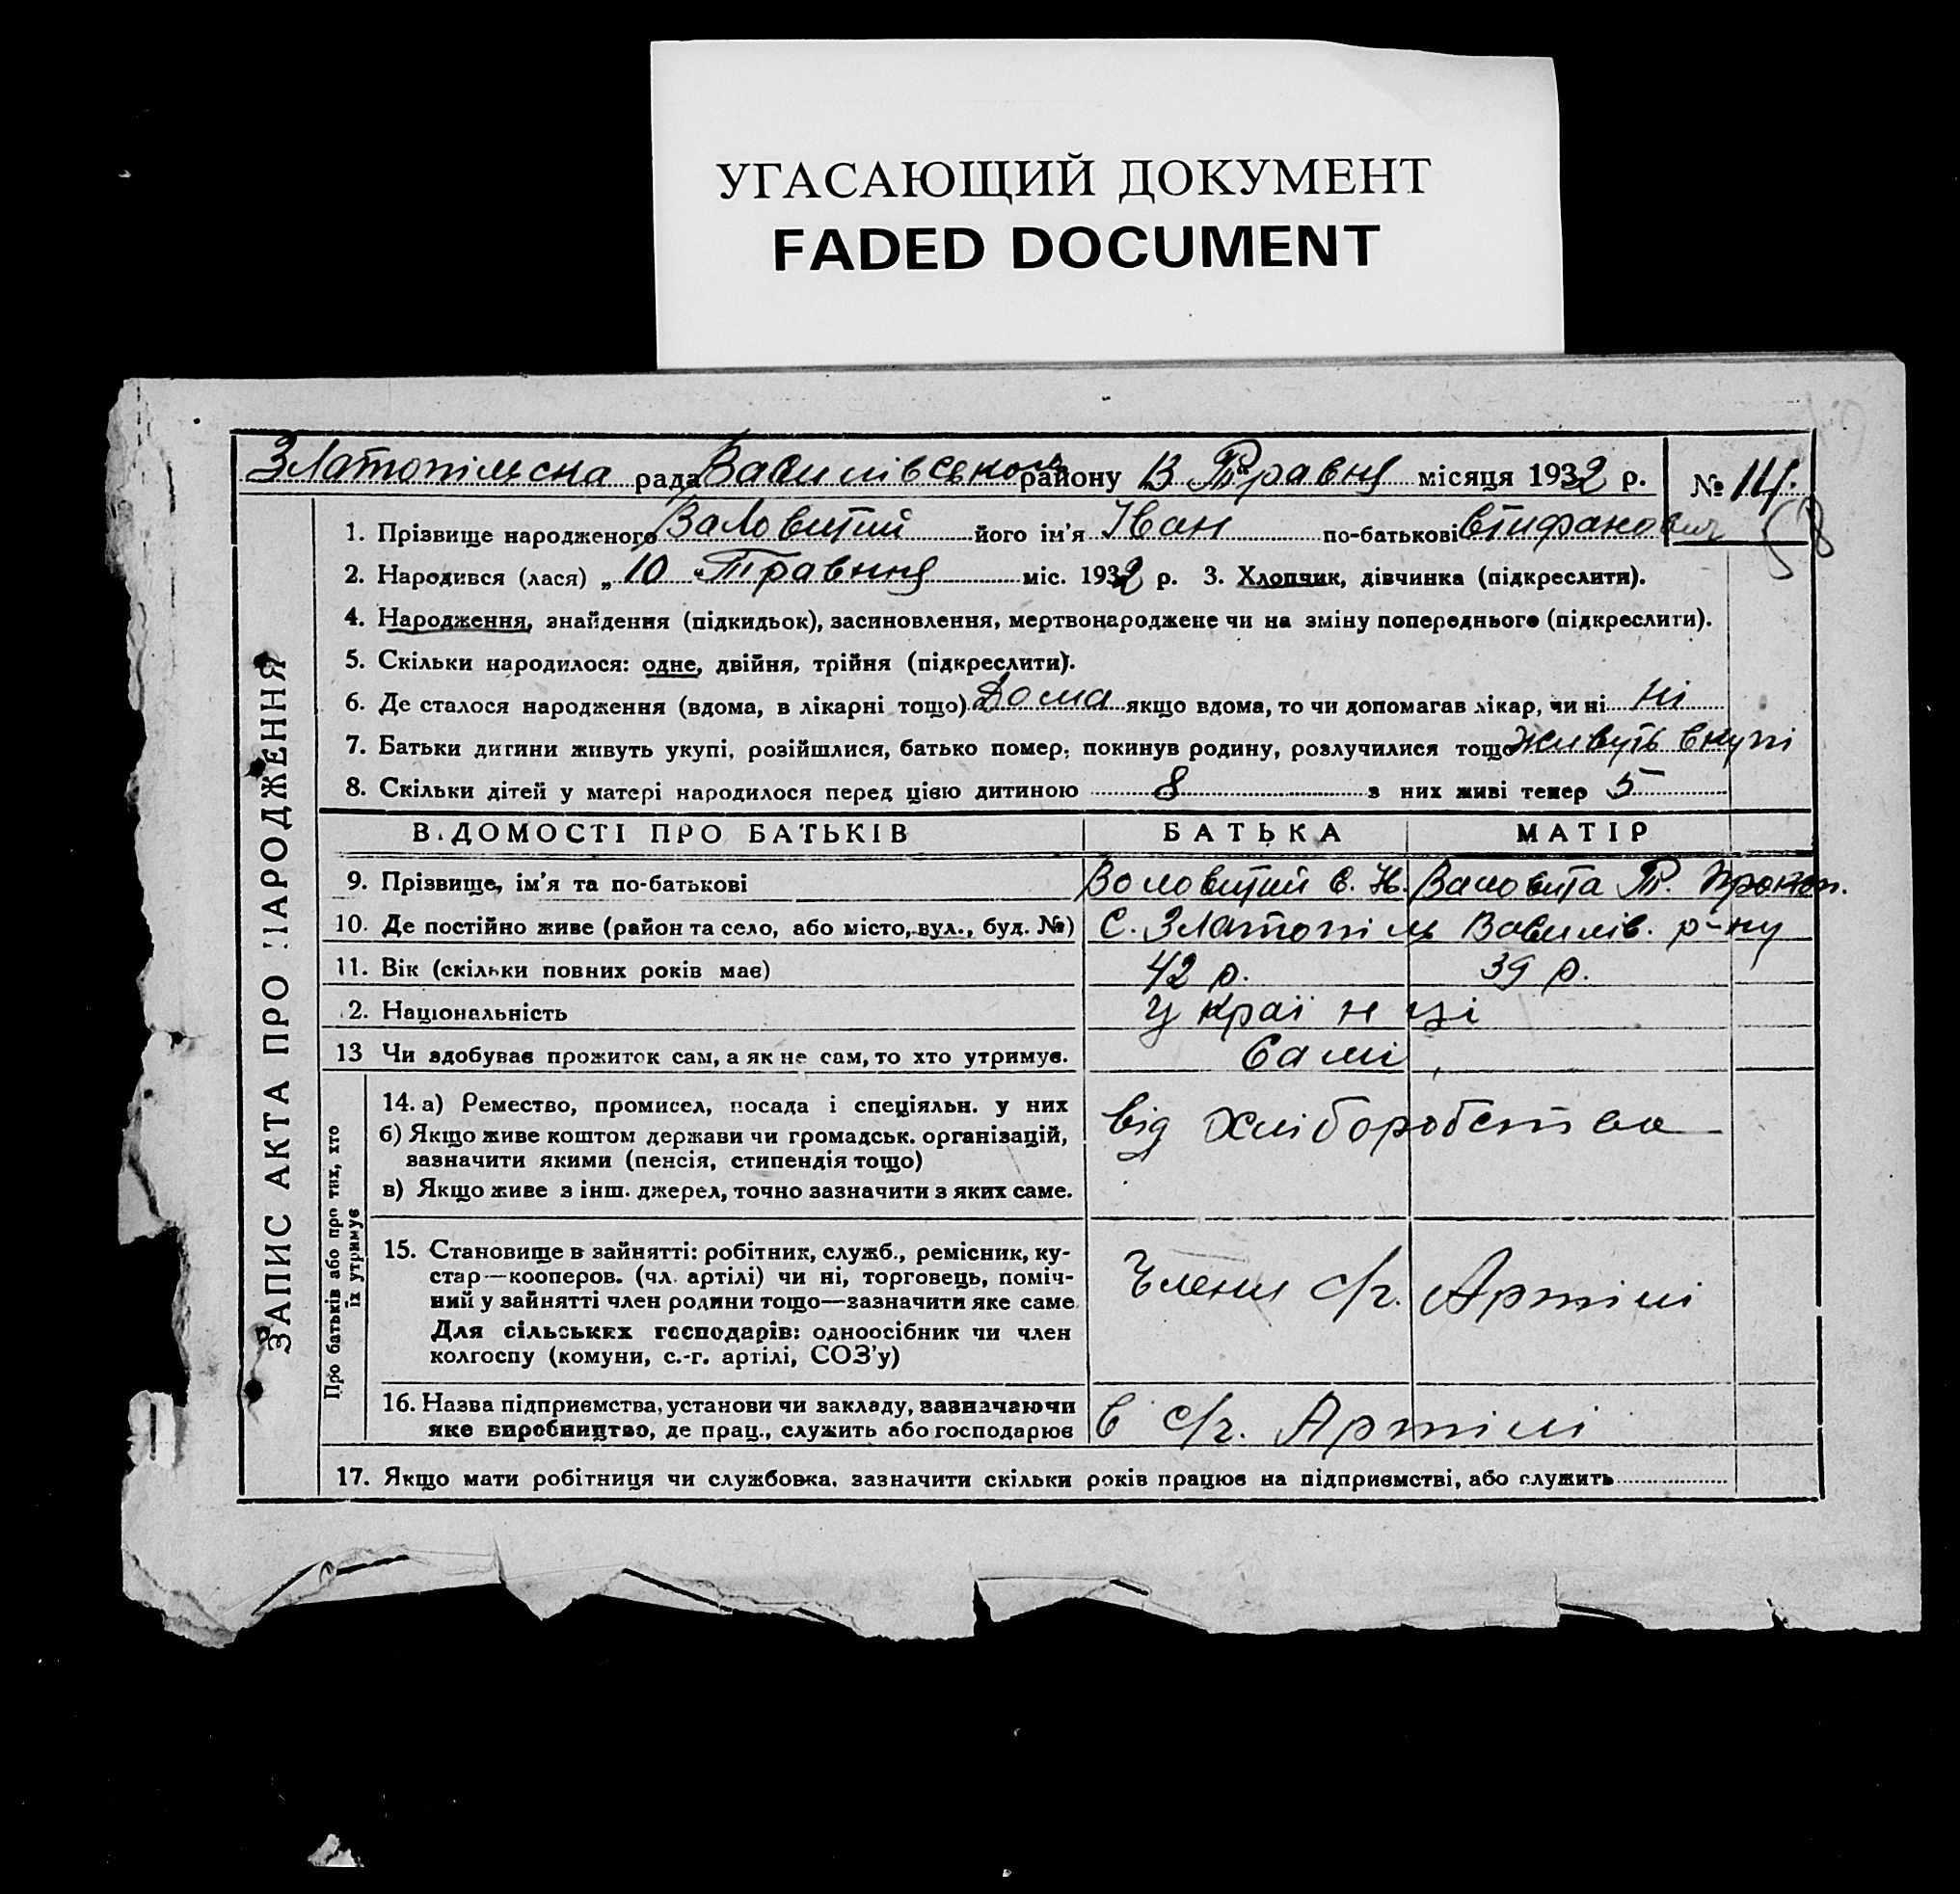 УГАСАЮЩИЙ ДОКУМЕНТ
FADED DOCUMENT
Златопільска рада Василівському району 13 Травня місяця 1932 р. № 14.
58
ЗАПИС АКТА ПРО НАРОДЖЕННЯ
1. Прізвище народженого Валовитий його ім'я Іван по-батькові Єтифанович
2. Народився (лася) „10" Травння міс. 1932 р. 3. Хлопчик, дівчинка (підкреслити).
4. Народження, знайдення (підкидьок), засиновлення, мертвонароджене чи на зміну попереднього (підкреслити).
5. Скільки народилося: одне, двійня, трійня (підкреслити).
6. Де сталося народження (вдома, в лікарні тощо) Дома якщо вдома, то чи допомагав лікар, чи ні ні
7. Батьки дитини живуть укупі, розійшлися, батько помер, покинув родину, розлучилися тощо Живуть вкупі
8. Скільки дітей у матері народилося перед цією дитиною 8 з них живі тепер 5
ВІДОМОСТІ ПРО БАТЬКІВ БАТЬКА МАТІР
9. Прізвище, ім'я та по-батькові Воловитий Є. Н. Валовита Т. Прокоп.
10. Де постійно живе (район та село, або місто, вул., буд. №) С. Златопіль Василів. р-ну
11. Вік (скільки повних років має) 42 р. 39 р.
2. Національність Українці
13 Чи здобуває прожиток сам, а як не сам, то хто утримує. Самі
Про батьків або про тих, хто
їх утримує
14. а) Ремество, промисел, посада і спеціяльн. у них від хліборобства
б) Якщо живе коштом держави чи громадськ. організацій,
зазначити якими (пенсія, стипендія тощо)
в) Якщо живе з інш. джерел, точно зазначити з яких саме.
15. Становище в зайнятті: робітник, служб., ремісник, ку-
стар—кооперов. (чл. артілі) чи ні, торговець, поміч-
ний у зайнятті член родини тощо—зазначити яке саме Члени с/г. Артілі
Для сільських господарів: одноосібник чи член
колгоспу (комуни, с.-г. артілі, СОЗ'у)
16. Назва підприємства, установи чи закладу, зазначаючи
яке виробництво, де прац., служить або господарює в с/г. Артілі
17. Якщо мати робітниця чи службовка, зазначити скільки років працює на підприємстві, або служить